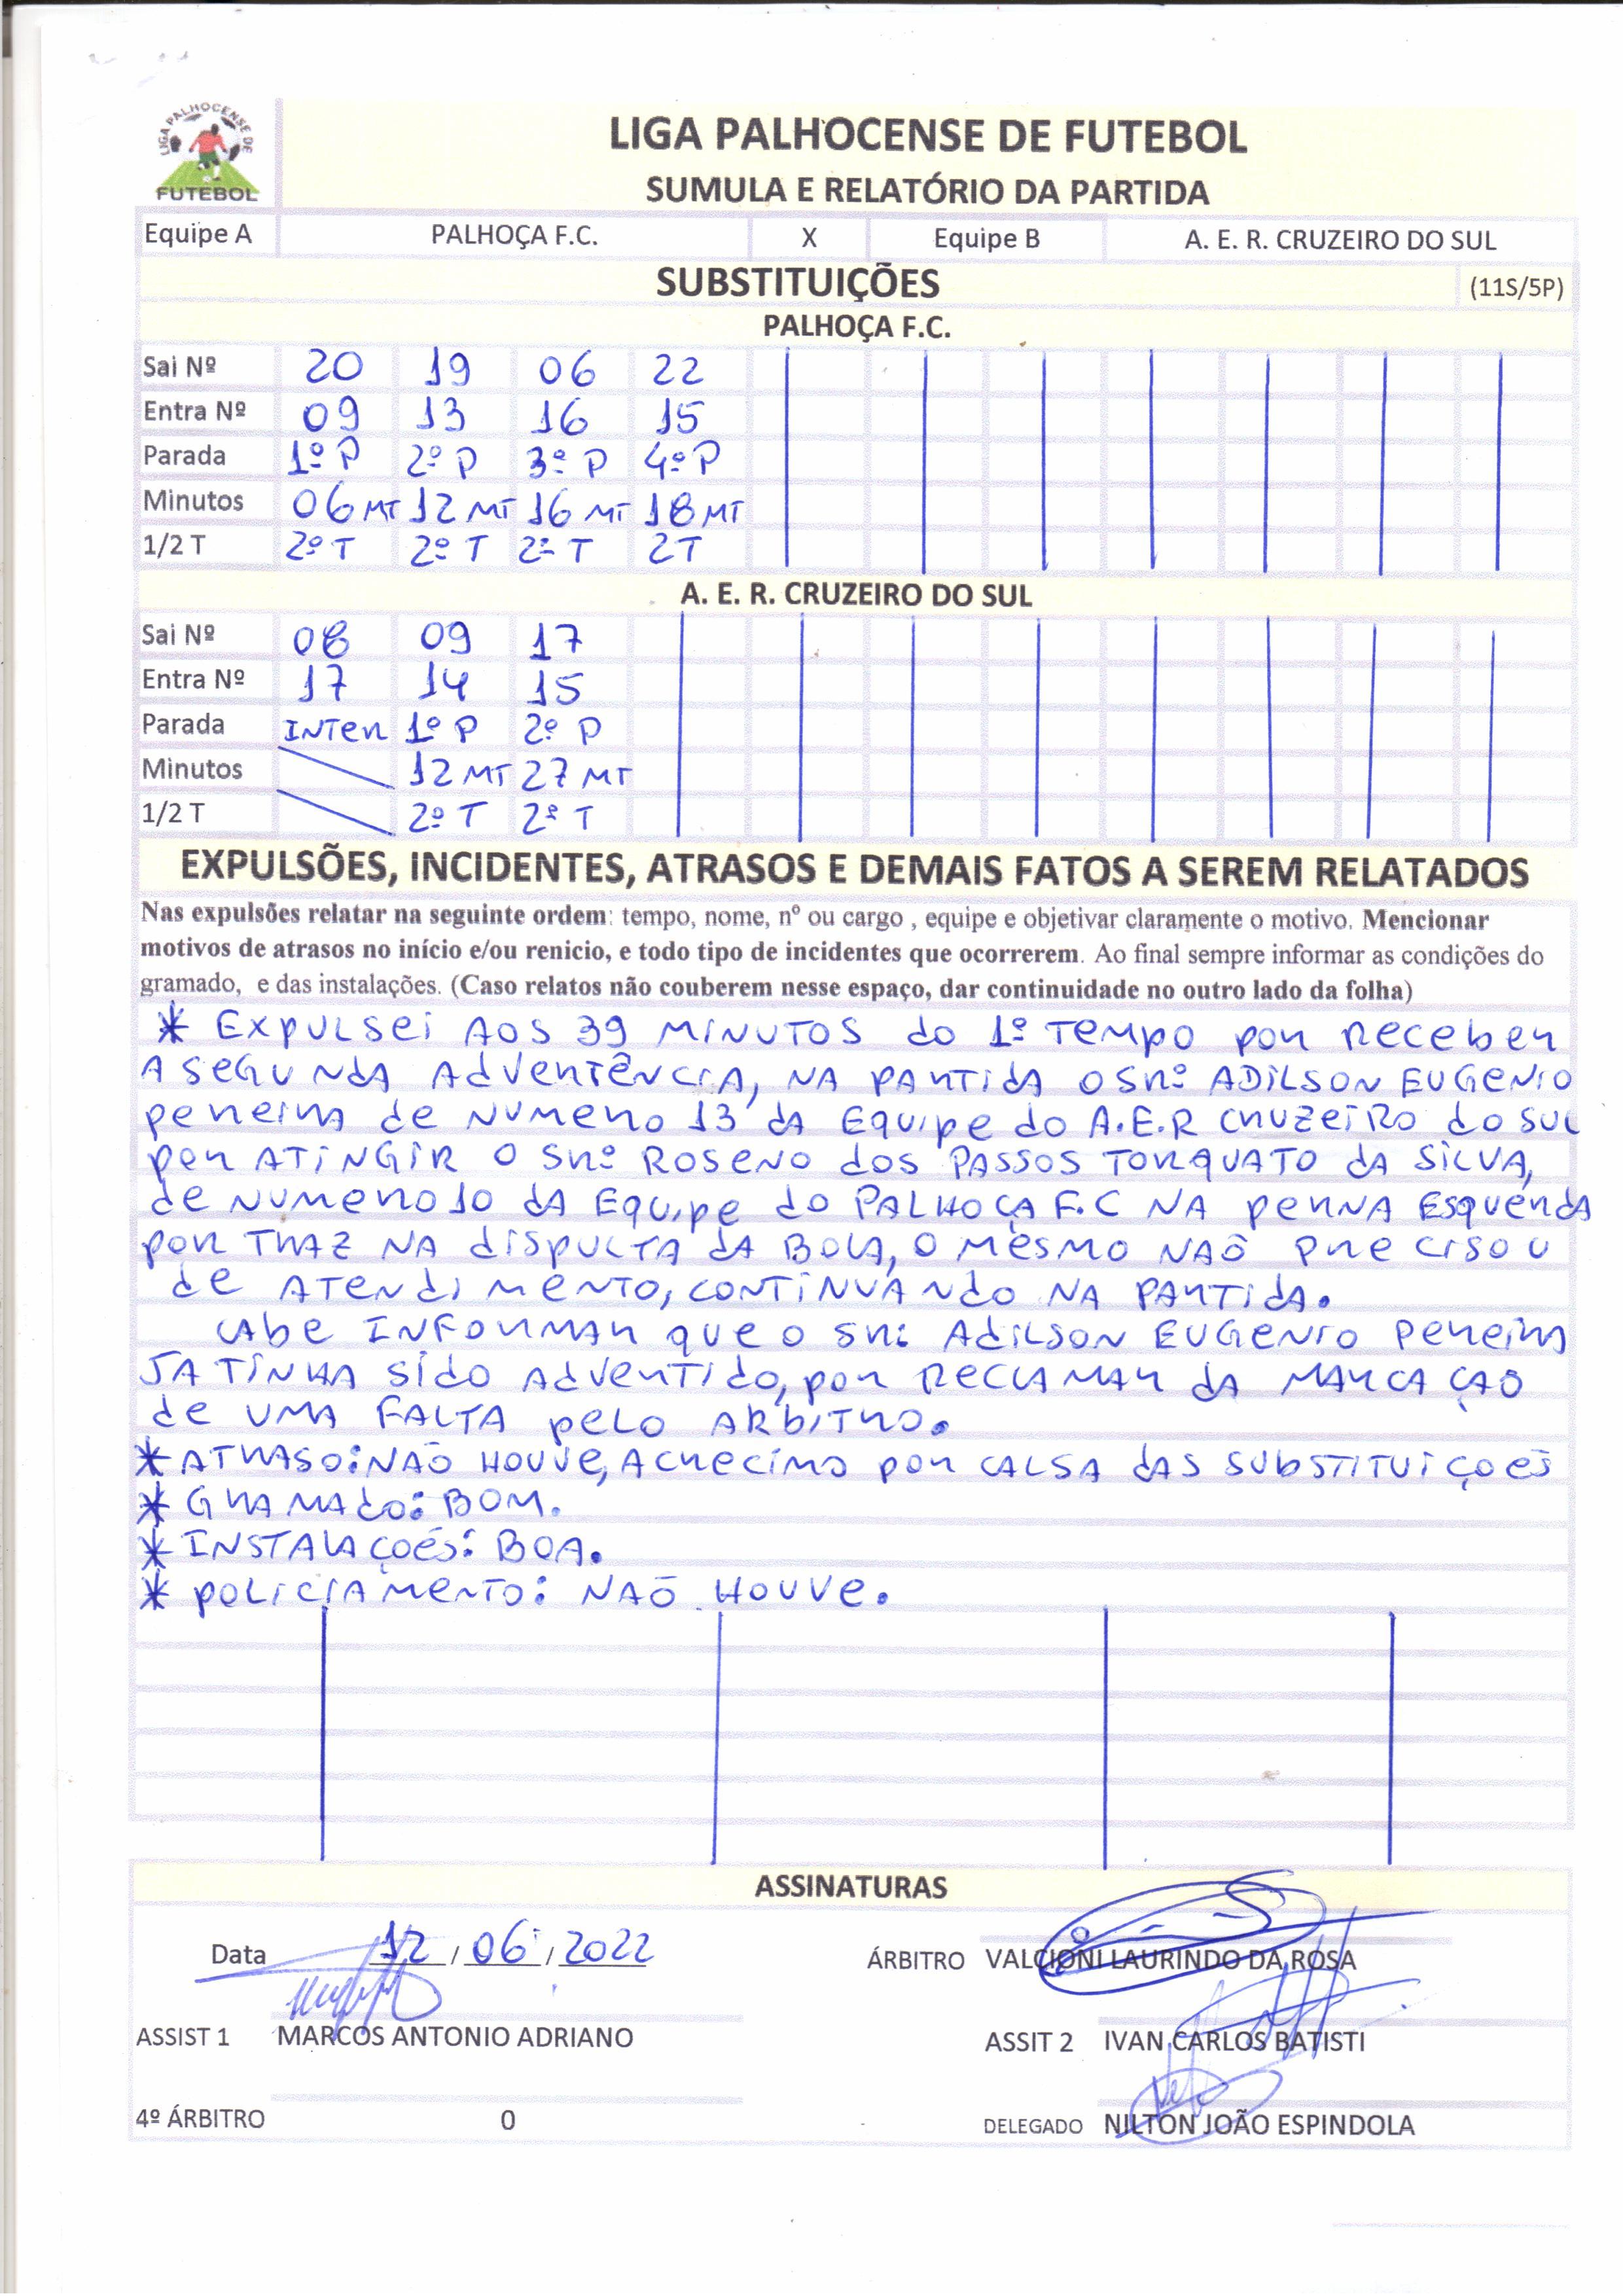 LIGA PALHOCENSE DE
FUTEBOL
LIGA PALHOCENSE DE FUTEBOL
SUMULA E RELATÓRIO DA PARTIDA
Equipe A PALHOÇA F.C. X Equipe B A. E. R. CRUZEIRO DO SUL
SUBSTITUIÇÕES (11S/5P)
PALHOÇA F.C.
Sai Nº 20 19 06 22
Entra Nº 09 13 16 15
Parada 1º P 2º P 3º P 4º P
Minutos 06 MT 12 MT 16 MT 18 MT
1/2 T 2º T 2º T 2º T 2T
A. E. R. CRUZEIRO DO SUL
Sai Nº 08 09 17
Entra Nº 17 14 15
Parada INTER 1º P 2º P
Minutos 12 MT 27 MT
1/2 T 2º T 2º T
EXPULSÕES, INCIDENTES, ATRASOS E DEMAIS FATOS A SEREM RELATADOS
Nas expulsões relatar na seguinte ordem: tempo, nome, nº ou cargo , equipe e objetivar claramente o motivo. Mencionar
motivos de atrasos no início e/ou renicio, e todo tipo de incidentes que ocorrerem. Ao final sempre informar as condições do
gramado, e das instalações. (Caso relatos não couberem nesse espaço, dar continuidade no outro lado da folha)
* EXPULSEI AOS 39 MINUTOS do 1º TEMPO por Receber
A SEGUNDA AdVERTÊNCIA, NA PARTIdA O SRº ADILSON EUGENIO
pereira de NUMERO 13 dA EQUIPE do A.E.R CRUZEIRO do SUL
por ATINGIR O SRº ROSENO dOS PASSOS TORQUATO dA SILVA,
de NUMERO 10 dA EQUIPE do PALHOÇA F.C NA perNA ESQUERdA
por TRAZ NA dISPULTA dA BOLA, O MESMO NAÕ PRECISOU
de ATENdIMENTO, CONTINUANdO NA PARTIdA.
CAbe INFORMAR que o SR: AdILSON EUGENIO Pereira
JA TINHA SIdO AdVERTIdO, por RECLAMAR dA MARCAÇAO
de UMA FALTA pELO ARbITRO.
* ATRASO: NAÕ HOUVE, ACRECIMO por CALSA dAS SUbSTITUIÇOES
* GRAMAdo: BOM.
* INSTALAÇOES: BOA.
* POLICIAMENTO: NAÕ HOUVE.
ASSINATURAS
Data 12 / 06 / 2022 ÁRBITRO VALCIONI LAURINDO DA ROSA
ASSIST 1 MARCOS ANTONIO ADRIANO ASSIT 2 IVAN CARLOS BATISTI
4º ÁRBITRO 0 DELEGADO NILTON JOÃO ESPINDOLA